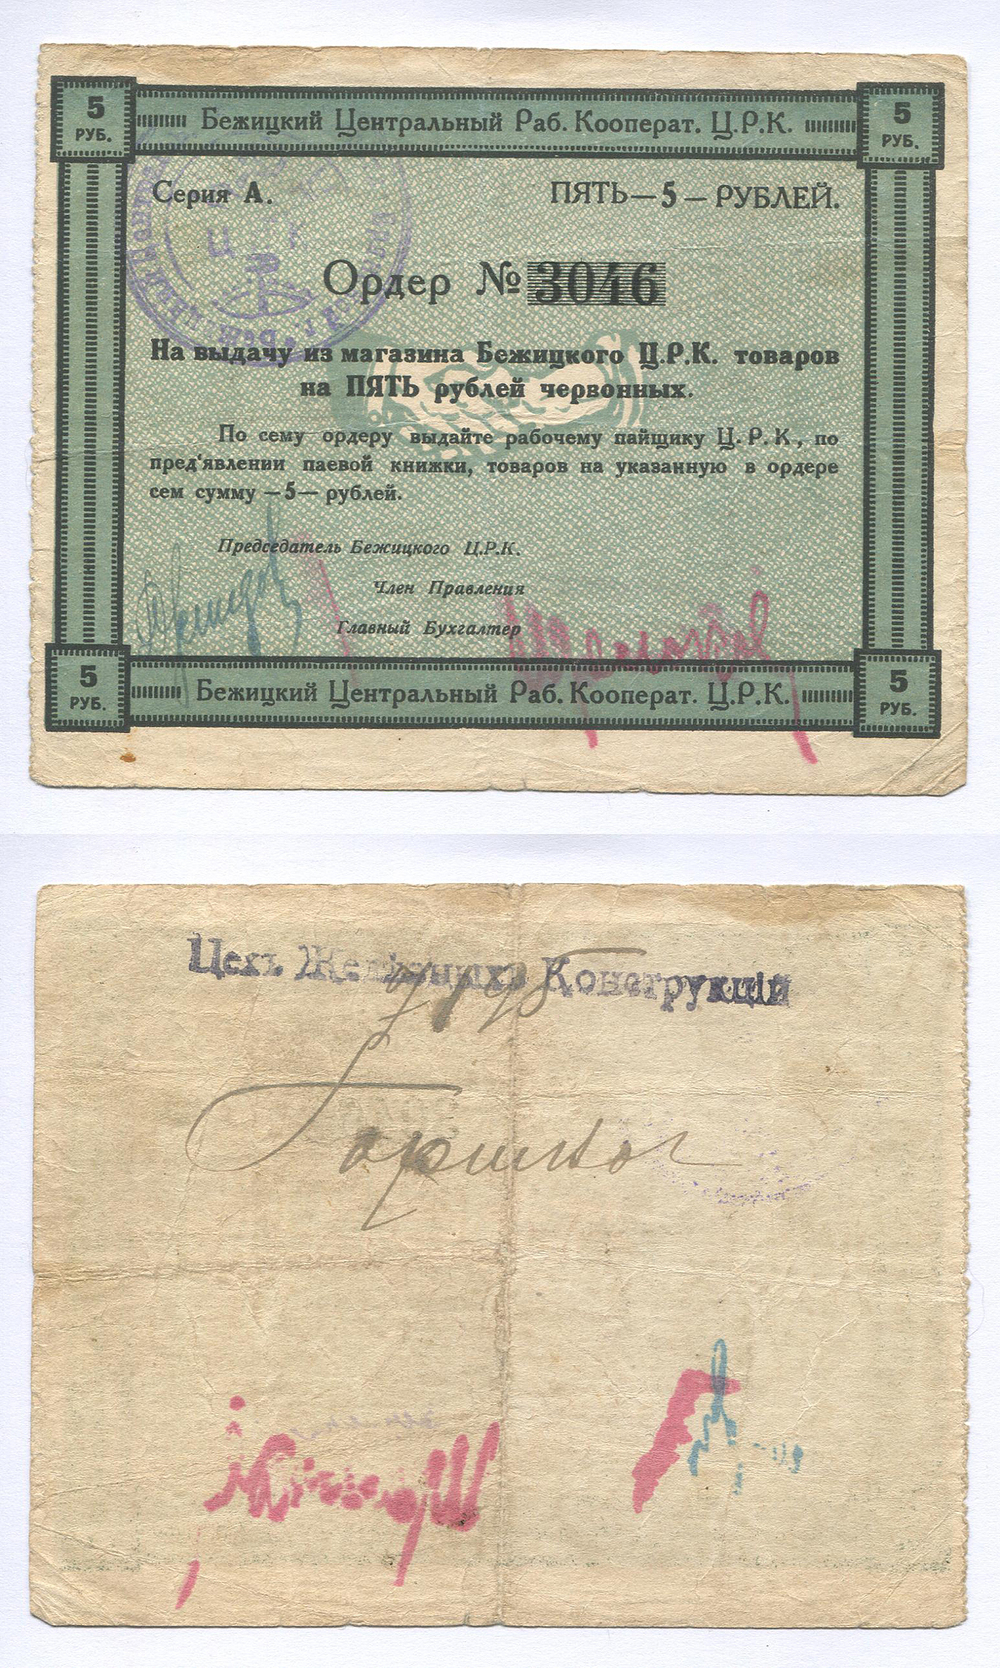 5 РУБ.
Бежицкий Центральный Раб. Кооперат. Ц.Р.К.
5 РУБ.
Серия А.
ПЯТЬ—5—РУБЛЕЙ.
Ордер № 3046
На выдачу из магазина Бежицкого Ц.Р.К. товаров
на ПЯТЬ рублей червонных.
По сему ордеру выдайте рабочему пайщику Ц. Р. К., по
пред'явлении паевой книжки, товаров на указанную в ордере
сем сумму —5— рублей.
Председатель Бежицкого Ц.Р.К.
Член Правления
Главный Бухгалтер
5 РУБ.
Бежицкий Центральный Раб. Кооперат. Ц.Р.К.
5 РУБ.
Цехъ Желѣзныхъ Конструкцій